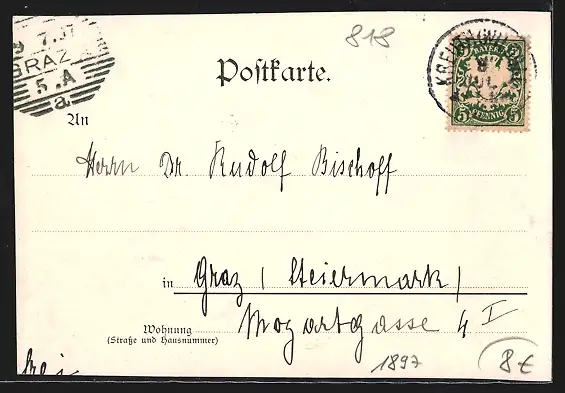 818
9 7.97
GRAZ
5.A
a
BAYERN
5 5
PFENNIG
5 5
8
JUL
Postkarte.
An
Herrn Dr. Rudolf Bischoff
in Graz (Steiermark)
Wohnung Mozartgasse 4 I
(Straße und Hausnummer)
frei
1897
8 €